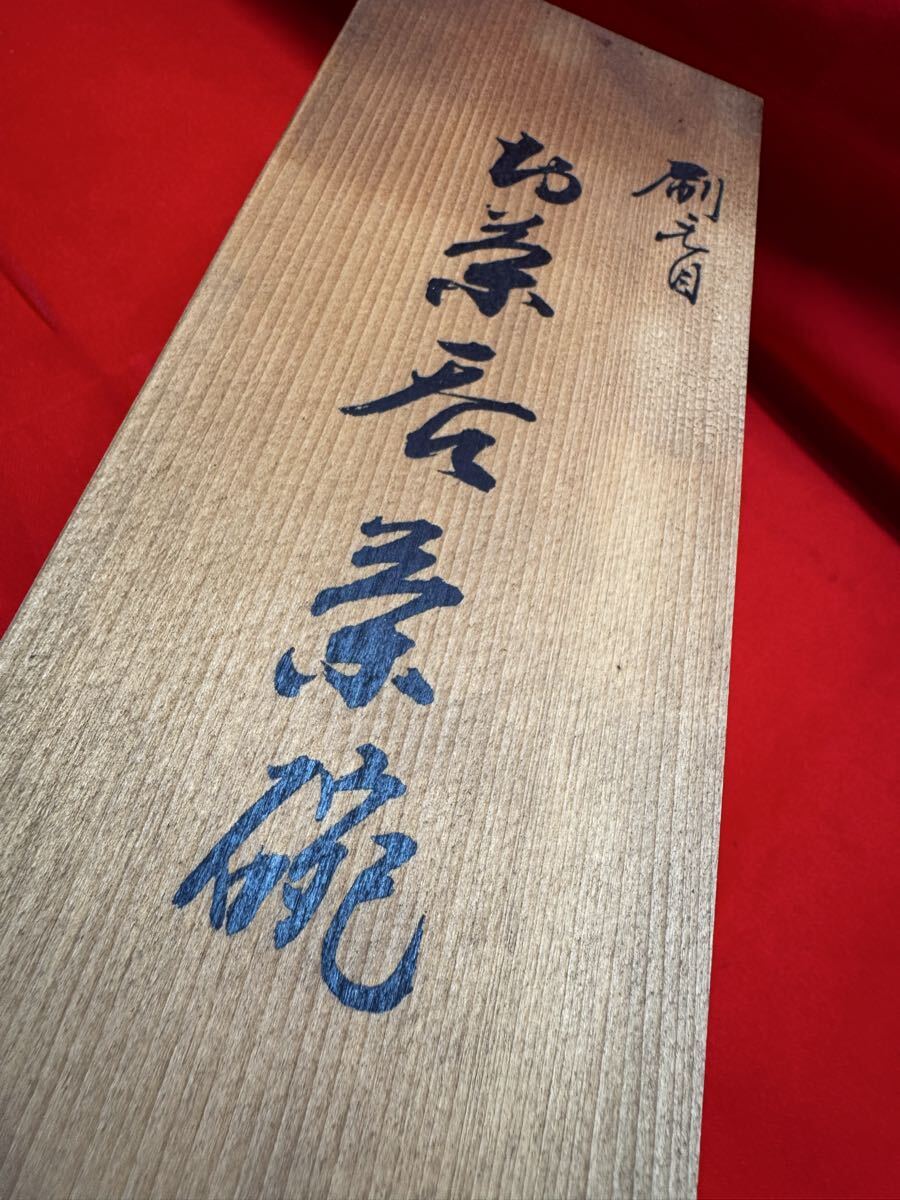 刷毛目
茶呑茶碗